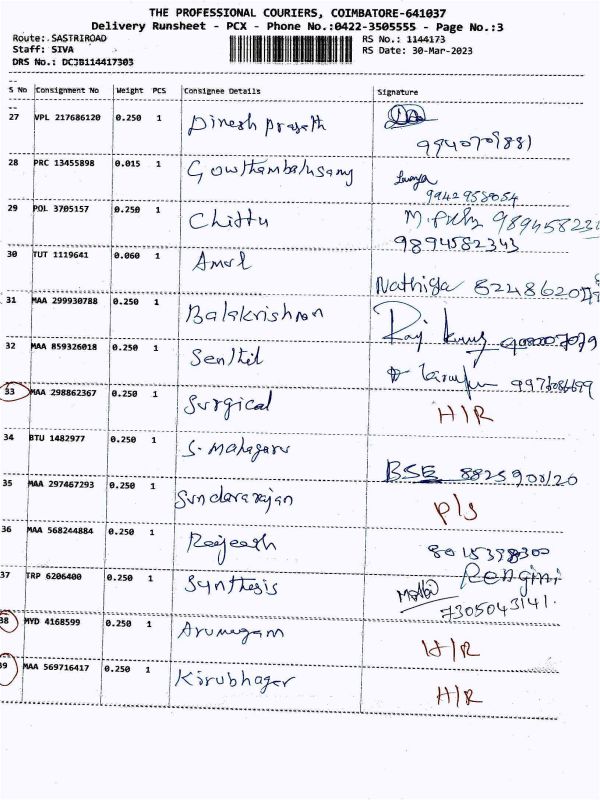 THE PROFESSIONAL COURIERS, COIMBATORE-641037
Delivery Runsheet - PCX - Phone No.:0422-3505555 - Page No.:3
Route: SASTRIROAD RS No.: 1144173
Staff: SIVA RS Date: 30-Mar-2023
DRS No.: DCJB114417303
S No Consignment No Weight PCS Consignee Details Signature
27 VPL 217686120 0.250 1 Dinesh Prasath
9940709881
28 PRC 13455898 0.015 1 Gowthambalusamy
9442958054
29 POL 3705157 0.250 1 Chittu
9894582343
30 TUT 1119641 0.060 1 Amol
Nathiya
31 MAA 299930788 0.250 1 Balakrishnan
Raj Kumar
32 MAA 859326018 0.250 1 Senthil
33 MAA 298862367 0.250 1 Surgical H/R
34 BTU 1482977 0.250 1
BSE
35 MAA 297467293 0.250 1 Sundararajan P/S
36 MAA 568244884 0.250 1 Rajeesh
Rengini
37 TRP 6206400 0.250 1 Synthesis
7305043141.
38 MYD 4168599 0.250 1 Arumugam H/R
39 MAA 569716417 0.250 1 Kirubhager H/R